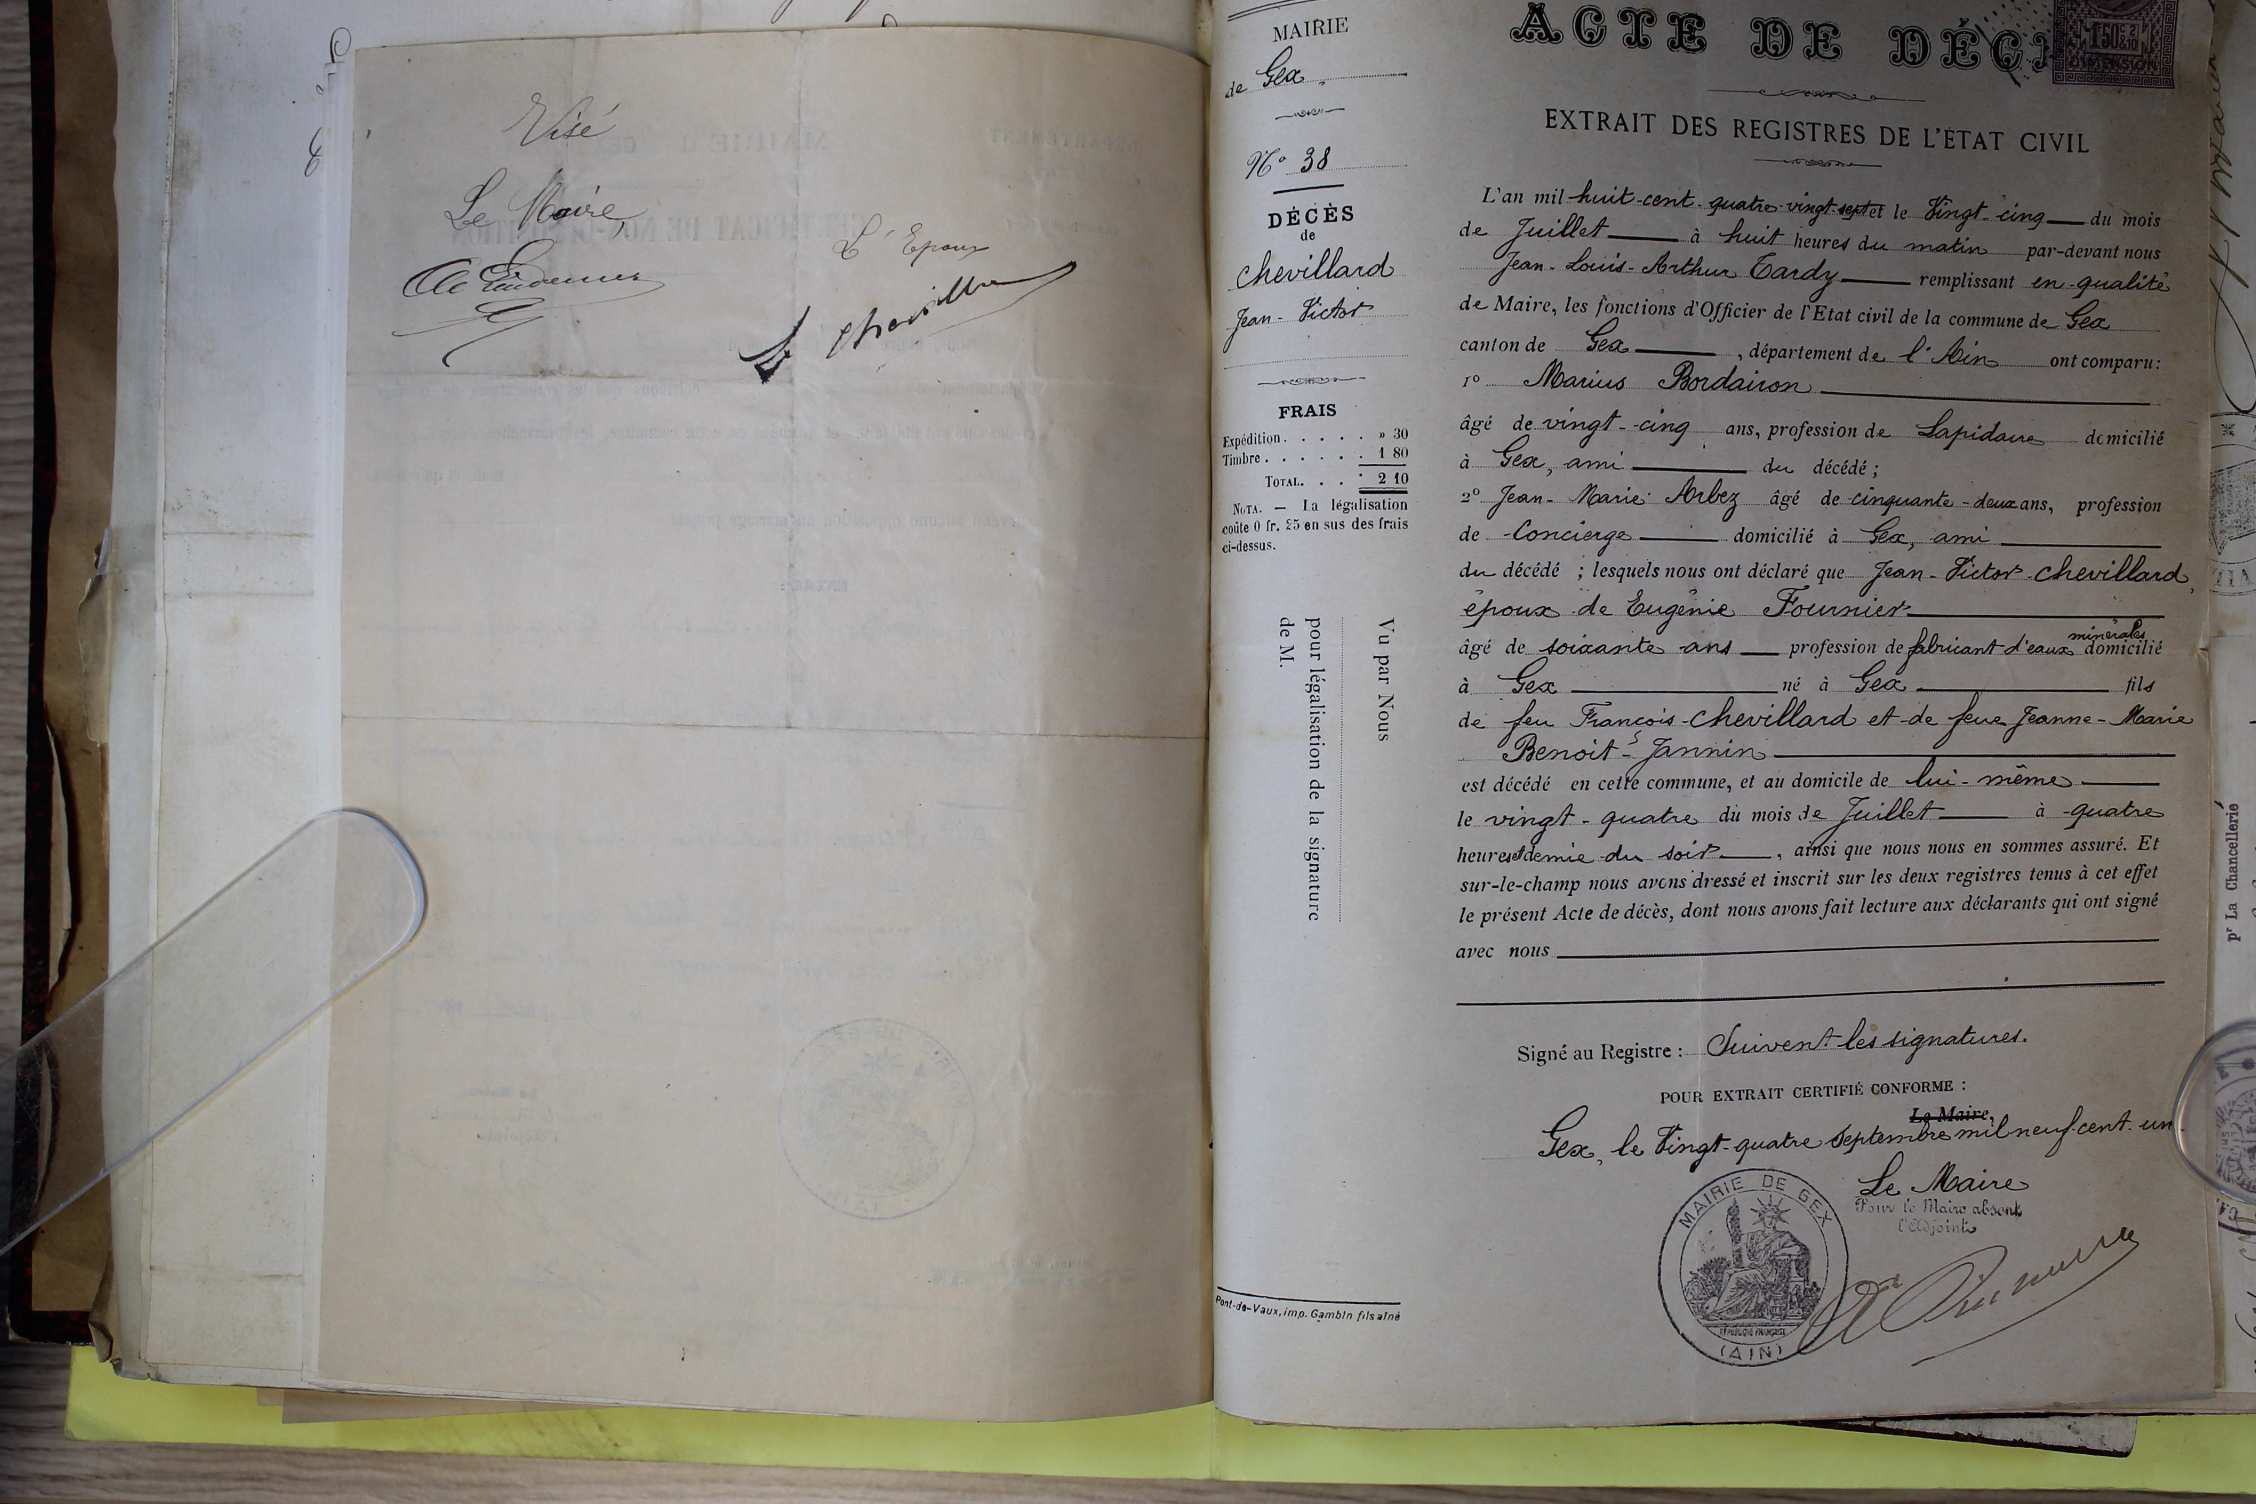 Visé
Le Maire,
L'Epoux
Chevillard
MAIRIE
de Gex
N° 38
DÉCÈS
de
Chevillard
Jean-Victor
FRAIS
Expédition . . . . . » 30
Timbre . . . . . . 1 80
TOTAL. . . . 2 10
NOTA. — La légalisation
coûte 0 fr. 25 en sus des frais
ci-dessus.
Vu par Nous
pour légalisation de la signature
de M.
Pont-de-Vaux, imp. Gambin fils aîné
ACTE DE DÉC
1F50C 2/10
DIMENSION
EXTRAIT DES REGISTRES DE L'ÉTAT CIVIL
L'an mil huit-cent-quatre-vingt-sept et le Vingt-cinq du mois
de Juillet à huit heures du matin par-devant nous
Jean-Louis-Arthur Tardy remplissant en qualité
de Maire, les fonctions d'Officier de l'Etat civil de la commune de Gex
canton de Gex, département de l'Ain ont comparu:
1° Marius Bordairon
âgé de vingt-cinq ans, profession de Lapidaire domicilié
à Gex, ami du décédé;
2° Jean-Marie Arbez âgé de cinquante-deux ans, profession
de Concierge domicilié à Gex, ami
du décédé; lesquels nous ont déclaré que Jean-Victor Chevillard,
époux de Eugénie Fournier
âgé de soixante ans profession de fabricant d'eaux minérales domicilié
à Gex né à Gex fils
de feu François Chevillard et de feue Jeanne-Marie
Benoit-Jannin
est décédé en cette commune, et au domicile de lui-même
le vingt-quatre du mois de Juillet à quatre
heures et demie du soir, ainsi que nous nous en sommes assuré. Et
sur-le-champ nous avons dressé et inscrit sur les deux registres tenus à cet effet
le présent Acte de décès, dont nous avons fait lecture aux déclarants qui ont signé
avec nous
Signé au Registre: Suivent les signatures.
POUR EXTRAIT CERTIFIÉ CONFORME:
Le Maire,
Gex, le Vingt-quatre Septembre mil neuf-cent-un.
Le Maire
Pour le Maire absent
l'Adjoint
MAIRIE DE GEX
RÉPUBLIQUE FRANÇAISE
(AIN)
pr La Chancellerie